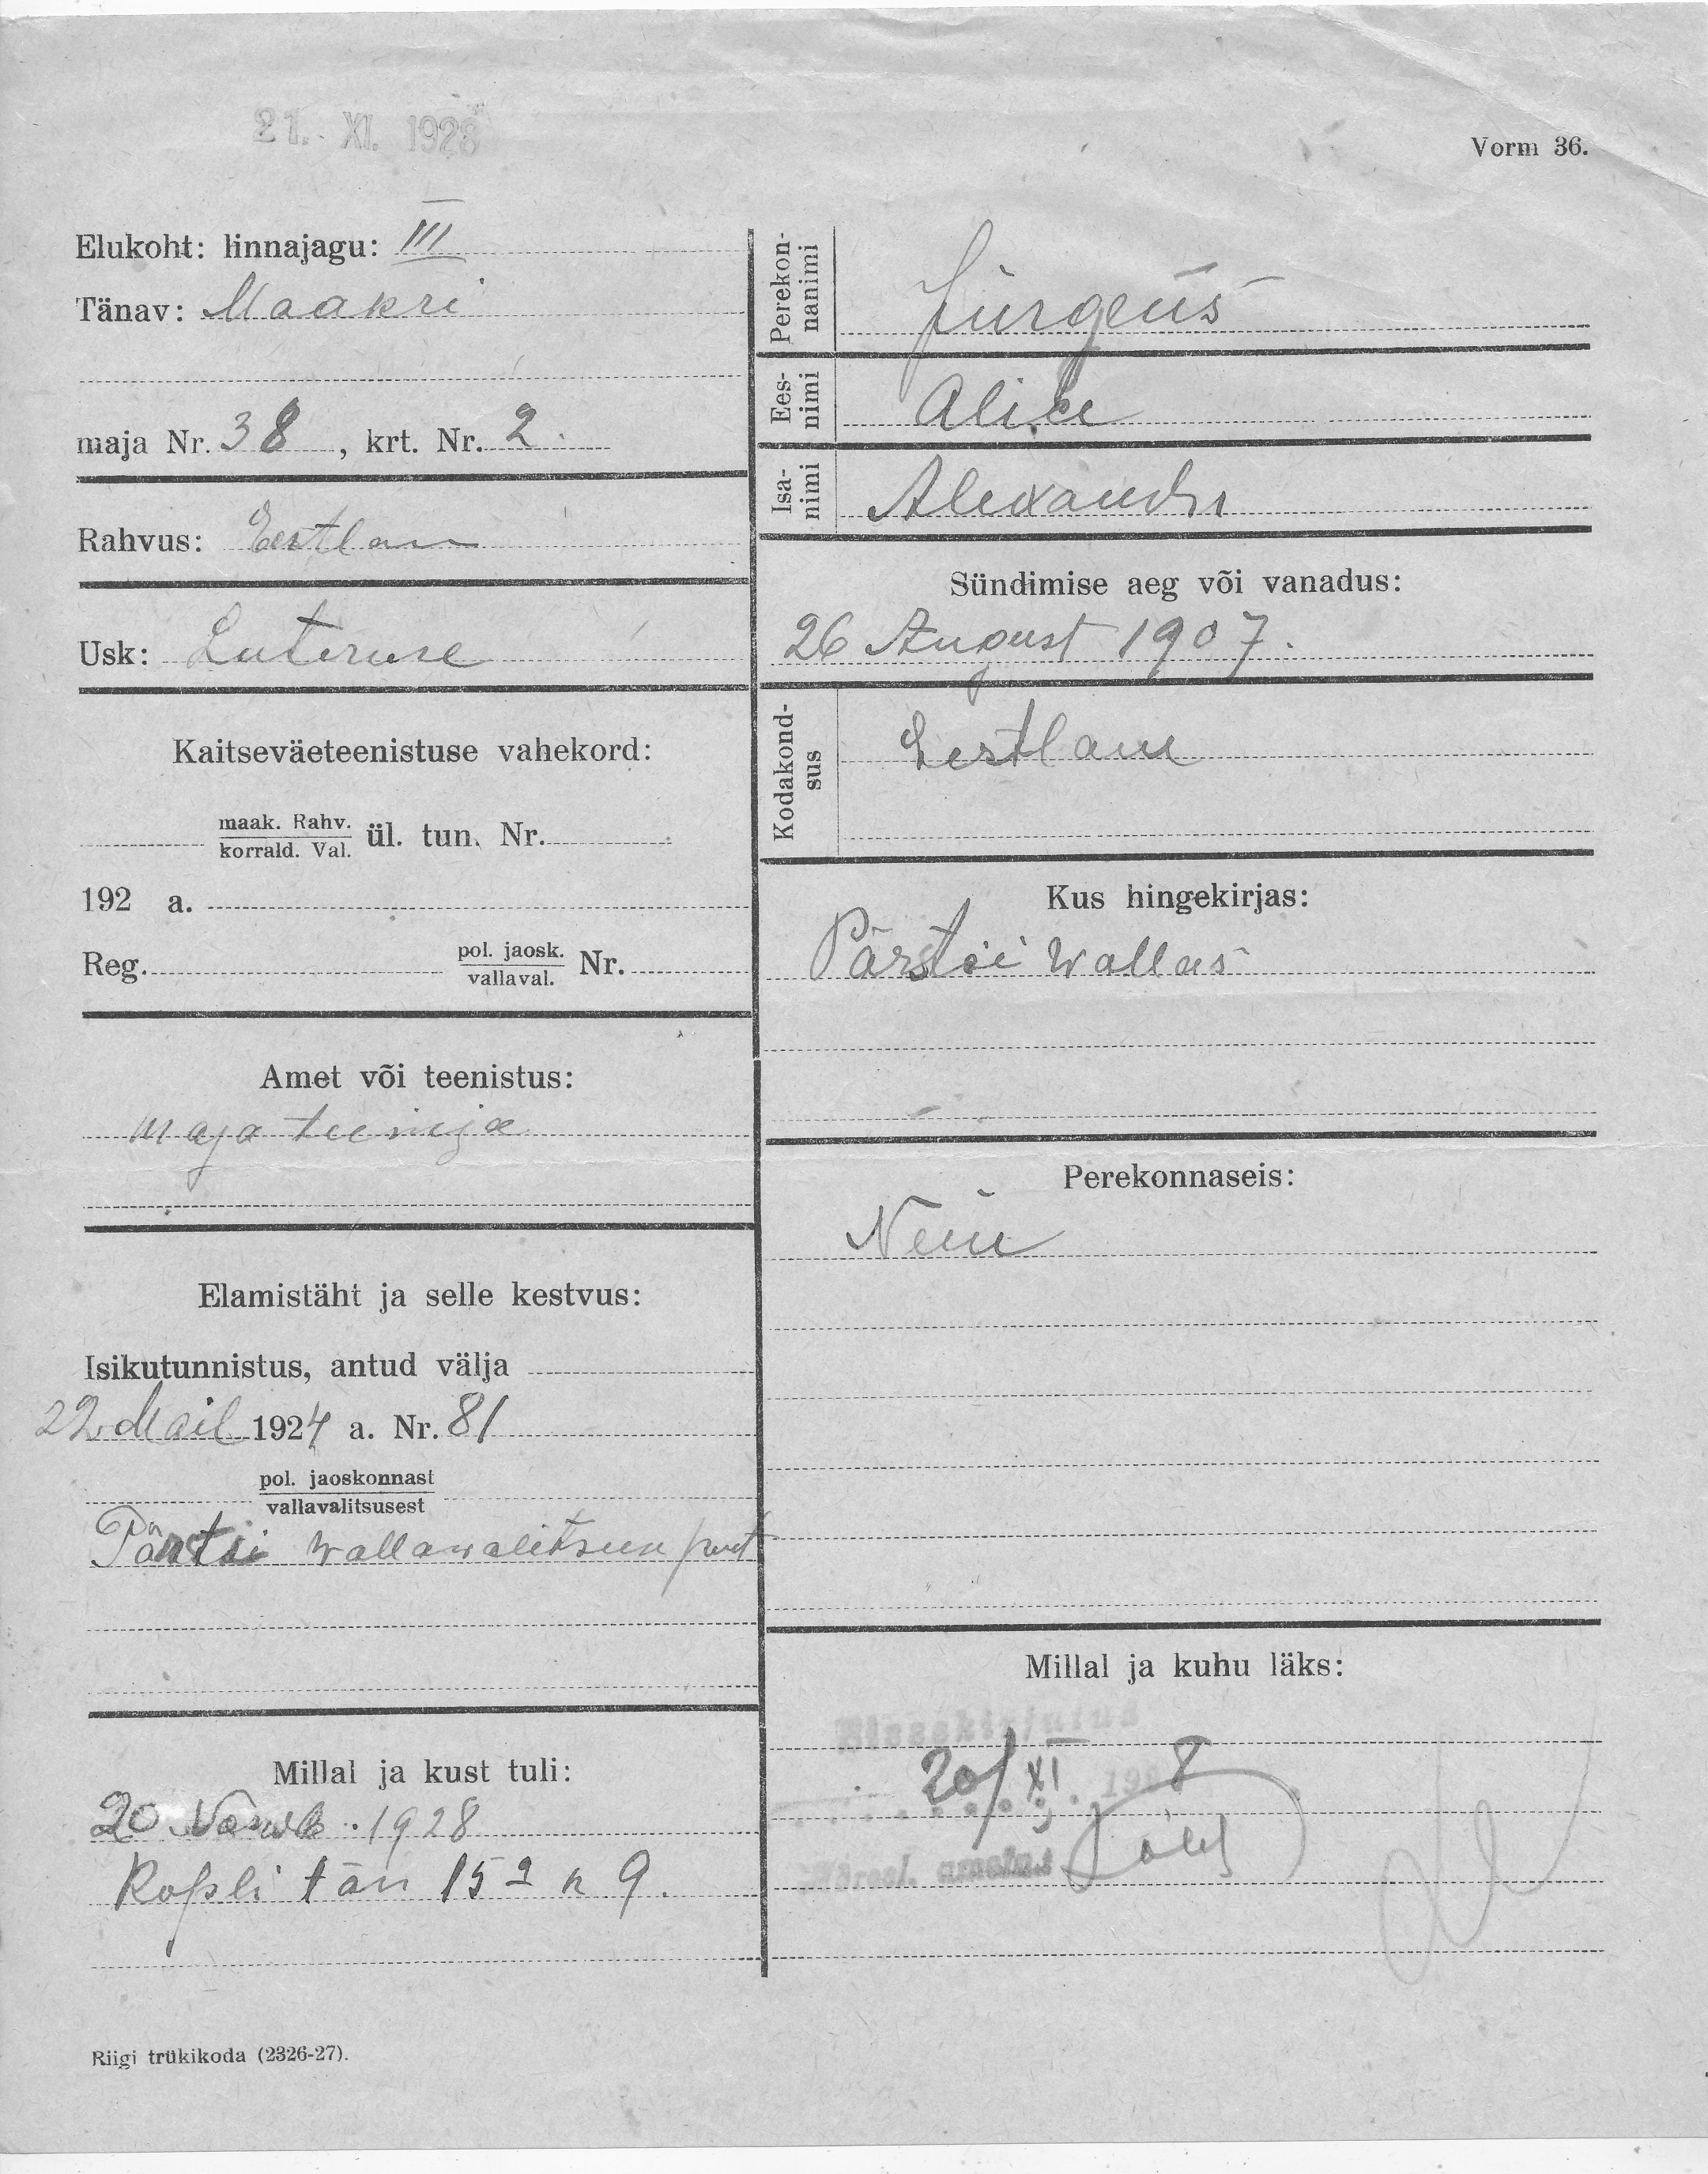 21. XI. 1928
Vorm 36.
Elukoht: linnajagu: III
Tänav: Maakri
maja Nr. 38, krt. Nr. 2.
Rahvus: Eestlane
Usk: Luteruse
Kaitseväeteenistuse vahekord:
maak. Rahv.
korrald. Val. ül. tun. Nr.
192 a.
Reg. pol. jaosk.
vallaval. Nr.
Amet või teenistus:
maja teenija
Elamistäht ja selle kestvus:
Isikutunnistus, antud välja
22. Mail 1924 a. Nr. 81
pol. jaoskonnast
vallavalitsusest
Pärsti wallawalitsuse poolt
Millal ja kust tuli:
20 Nowb. 1928
Kopli tän 15 9.
Riigi trükikoda (2326-27).
Perekon-
nanimi
Jürgens
Ees-
nimi
Alice
Isa-
nimi
Alexandri
Sündimise aeg või vanadus:
26 August 1907.
Kodakond-
sus
Eestlane
Kus hingekirjas:
Pärsti wallas
Perekonnaseis:
Neiu
Millal ja kuhu läks:
Sissekirjutud
20/XI. 1928
ametnik